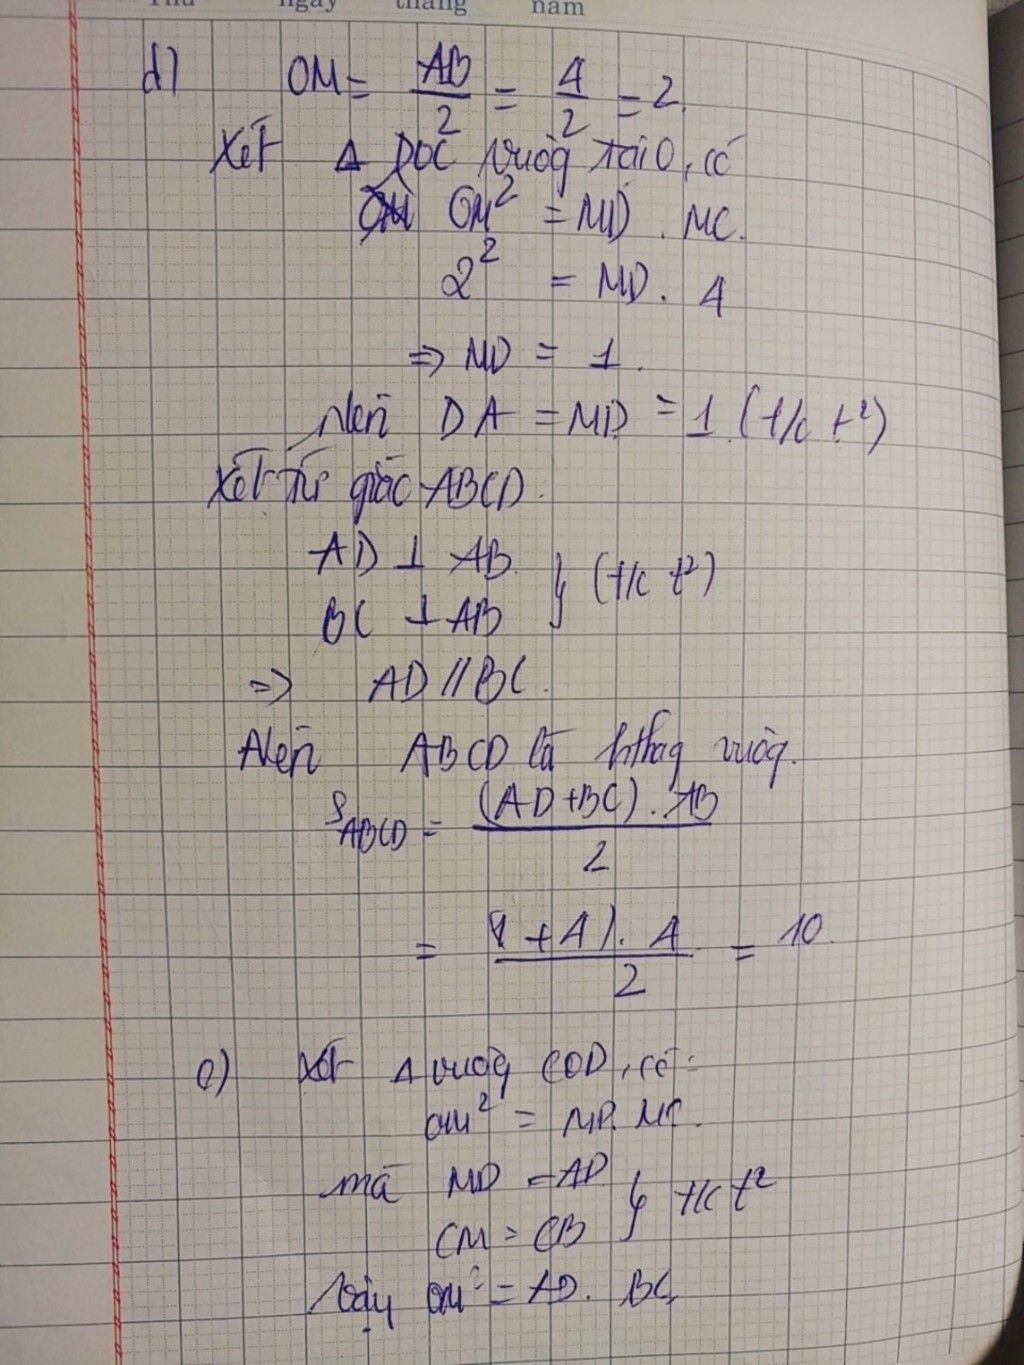 Thứ ngày tháng năm
d) OM = AB/2 = 4/2 = 2.
Xét Δ DOC vuôg tại O, có
OM OM² = MD . MC.
2² = MD . 4
=> MD = 1.
Nên DA = MD = 1 (t/c t²)
Xét tứ giác ABCD.
AD ⊥ AB.
BC ⊥ AB } (t/c t²)
=> AD // BC.
Nên ABCD là hthag vuôg.
S_ABCD = (AD + BC) . AB / 2
= (1 + 4) . 4 / 2 = 10.
e) Xét Δ vuôg COD, có:
OM² = MD. MC.
mà MD = AD
CM = CB } t/c t²
Vậy OM² = AD. BC